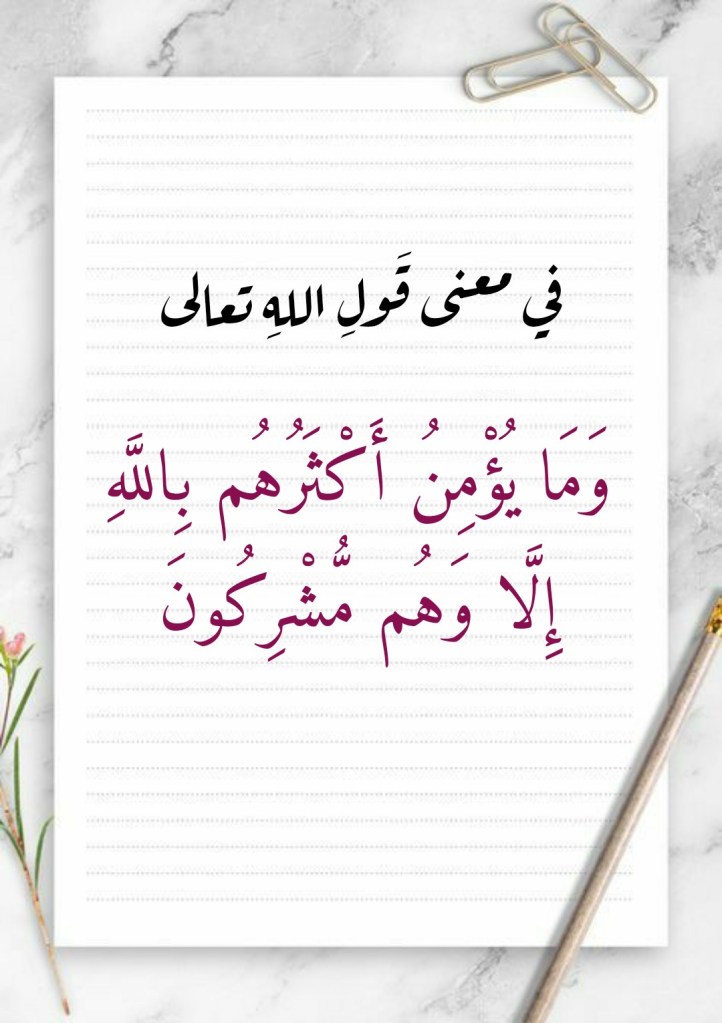 في معنى قَولِ اللهِ تعالى
وَمَا يُؤْمِنُ أَكْثَرُهُم بِاللَّهِ
إِلَّا وَهُم مُّشْرِكُونَ